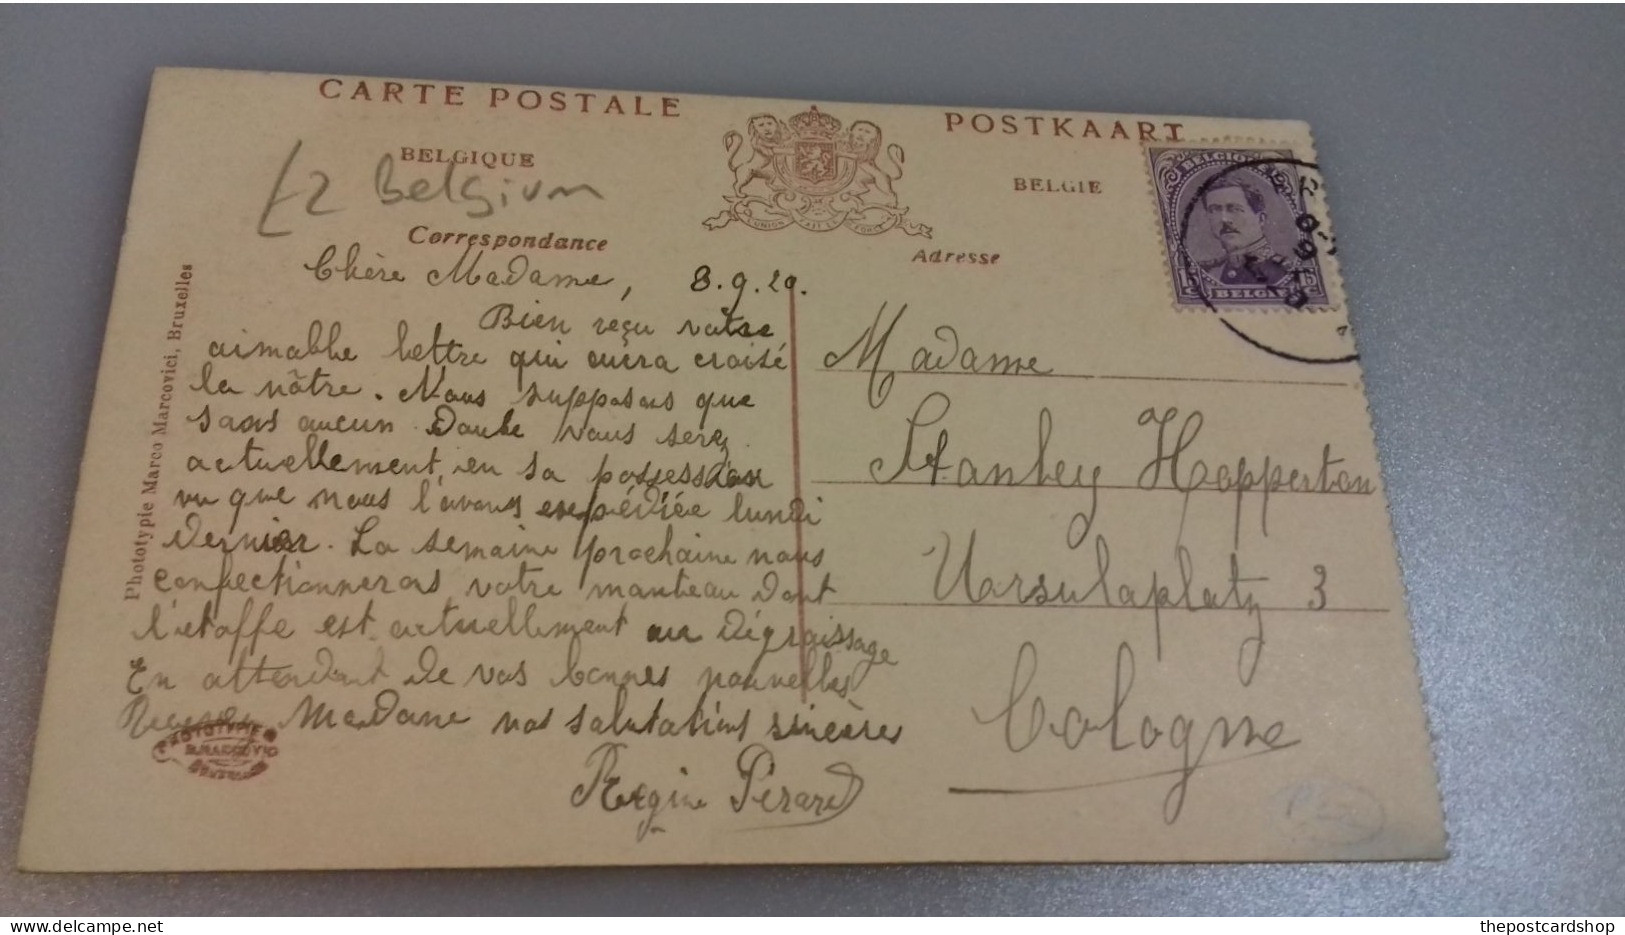 CARTE POSTALE
POSTKAART
BELGIQUE
BELGIE
£2 Belgium
L'UNION FAIT LA FORCE
Correspondance
Adresse
BELGIQUE
15 15
BELGIË
Chère Madame, 8.9.20.
Bien reçu votre
aimable lettre qui aura croisé
la nôtre. Nous supposons que
sans aucun doute vous serez
actuellement en sa possession
vu que nous l'avons expédiée lundi
dernier. La semaine prochaine nous
confectionnerons votre manteau dont
l'étoffe est actuellement au dégraissage
En attendant de vos bonnes nouvelles
Recevez Madame nos salutations sincères
Régine Pérard
Madame
Stanley Hopperton
Ursulaplatz 3
Cologne
Phototypie Marco Marcovici, Bruxelles
PHOTOTYPIE
MARCOVICI
BRUXELLES
www.delcampe.net
thepostcardshop